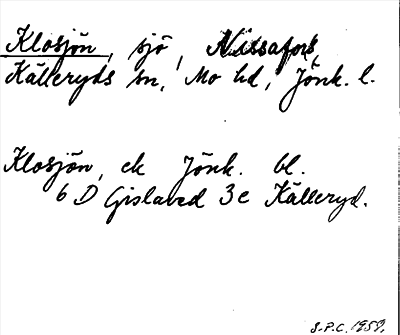 Klosjön, sjö, Nissafors,
Källeryds sn, Mo hd, Jönk. l.
Klosjön, ek Jönk. bl.
6 D Gislaved 3e Källeryd.
S.P.C. 1958.